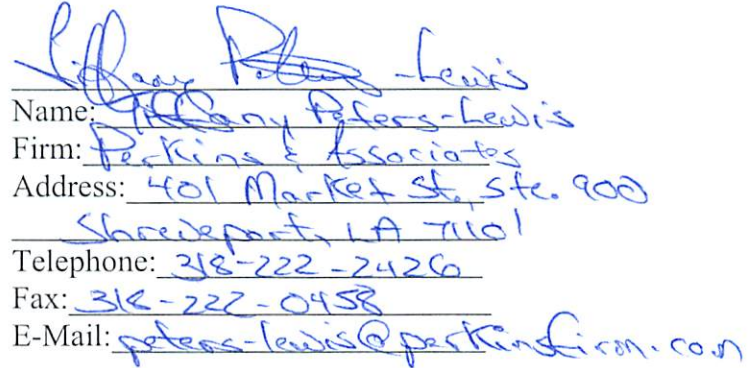 Tiffany Peters-Lewis
Name: Tiffany Peters-Lewis
Firm: Perkins & Associates
Address: 401 Market St., Ste. 900
Shreveport, LA 71101
Telephone: 318-222-2426
Fax: 318-222-0458
E-Mail: peters-lewis@perkinsfirm.com